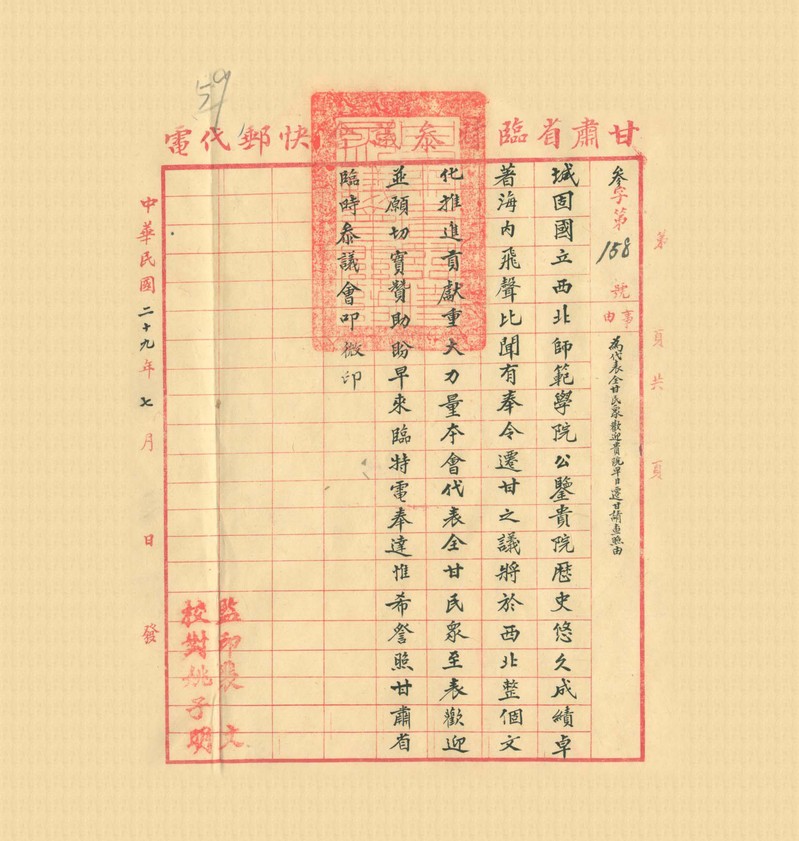 59
甘肅省臨時參議會快郵代電
第 頁共 頁
參字第158號
事由
為代表全甘民眾歡迎貴院早日遷甘請查照由
城固國立西北師範學院公鑒貴院歷史悠久成績卓
著海內飛聲比聞有奉令遷甘之議將於西北整個文
化推進貢獻重大力量本會代表全甘民眾至表歡迎
並願切實贊助盼早來臨特電奉達惟希詧照甘肅省
臨時參議會叩微印
監印裴 文
校對姚子明
中華民國二十九年七月 日 發